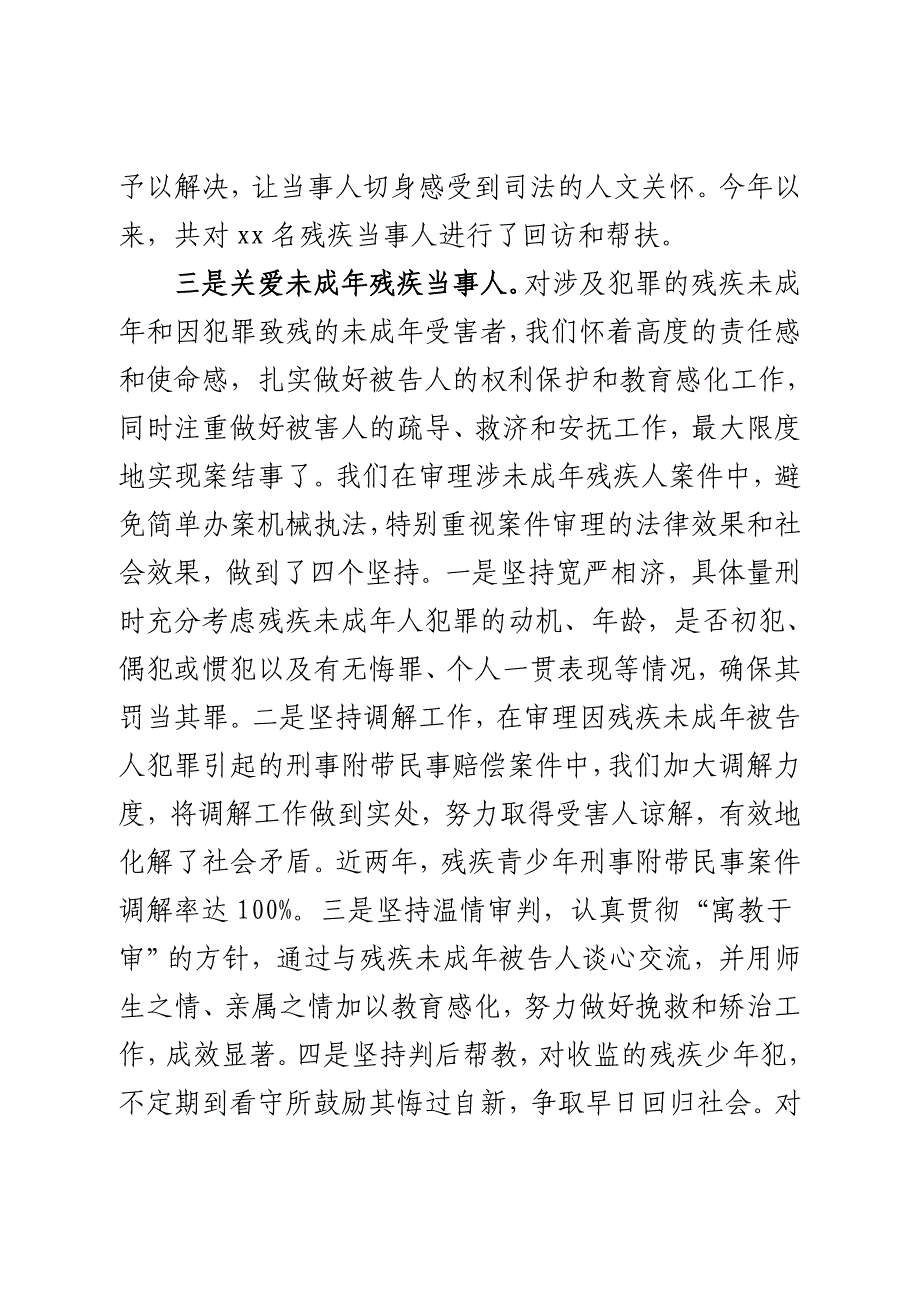 予以解决，让当事人切身感受到司法的人文关怀。今年以
来，共对 xx 名残疾当事人进行了回访和帮扶。
三是关爱未成年残疾当事人。对涉及犯罪的残疾未成
年和因犯罪致残的未成年受害者，我们怀着高度的责任感
和使命感，扎实做好被告人的权利保护和教育感化工作，
同时注重做好被害人的疏导、救济和安抚工作，最大限度
地实现案结事了。我们在审理涉未成年残疾人案件中，避
免简单办案机械执法，特别重视案件审理的法律效果和社
会效果，做到了四个坚持。一是坚持宽严相济，具体量刑
时充分考虑残疾未成年人犯罪的动机、年龄，是否初犯、
偶犯或惯犯以及有无悔罪、个人一贯表现等情况，确保其
罚当其罪。二是坚持调解工作，在审理因残疾未成年被告
人犯罪引起的刑事附带民事赔偿案件中，我们加大调解力
度，将调解工作做到实处，努力取得受害人谅解，有效地
化解了社会矛盾。近两年，残疾青少年刑事附带民事案件
调解率达 100%。三是坚持温情审判，认真贯彻“寓教于
审”的方针，通过与残疾未成年被告人谈心交流，并用师
生之情、亲属之情加以教育感化，努力做好挽救和矫治工
作，成效显著。四是坚持判后帮教，对收监的残疾少年犯，
不定期到看守所鼓励其悔过自新，争取早日回归社会。对